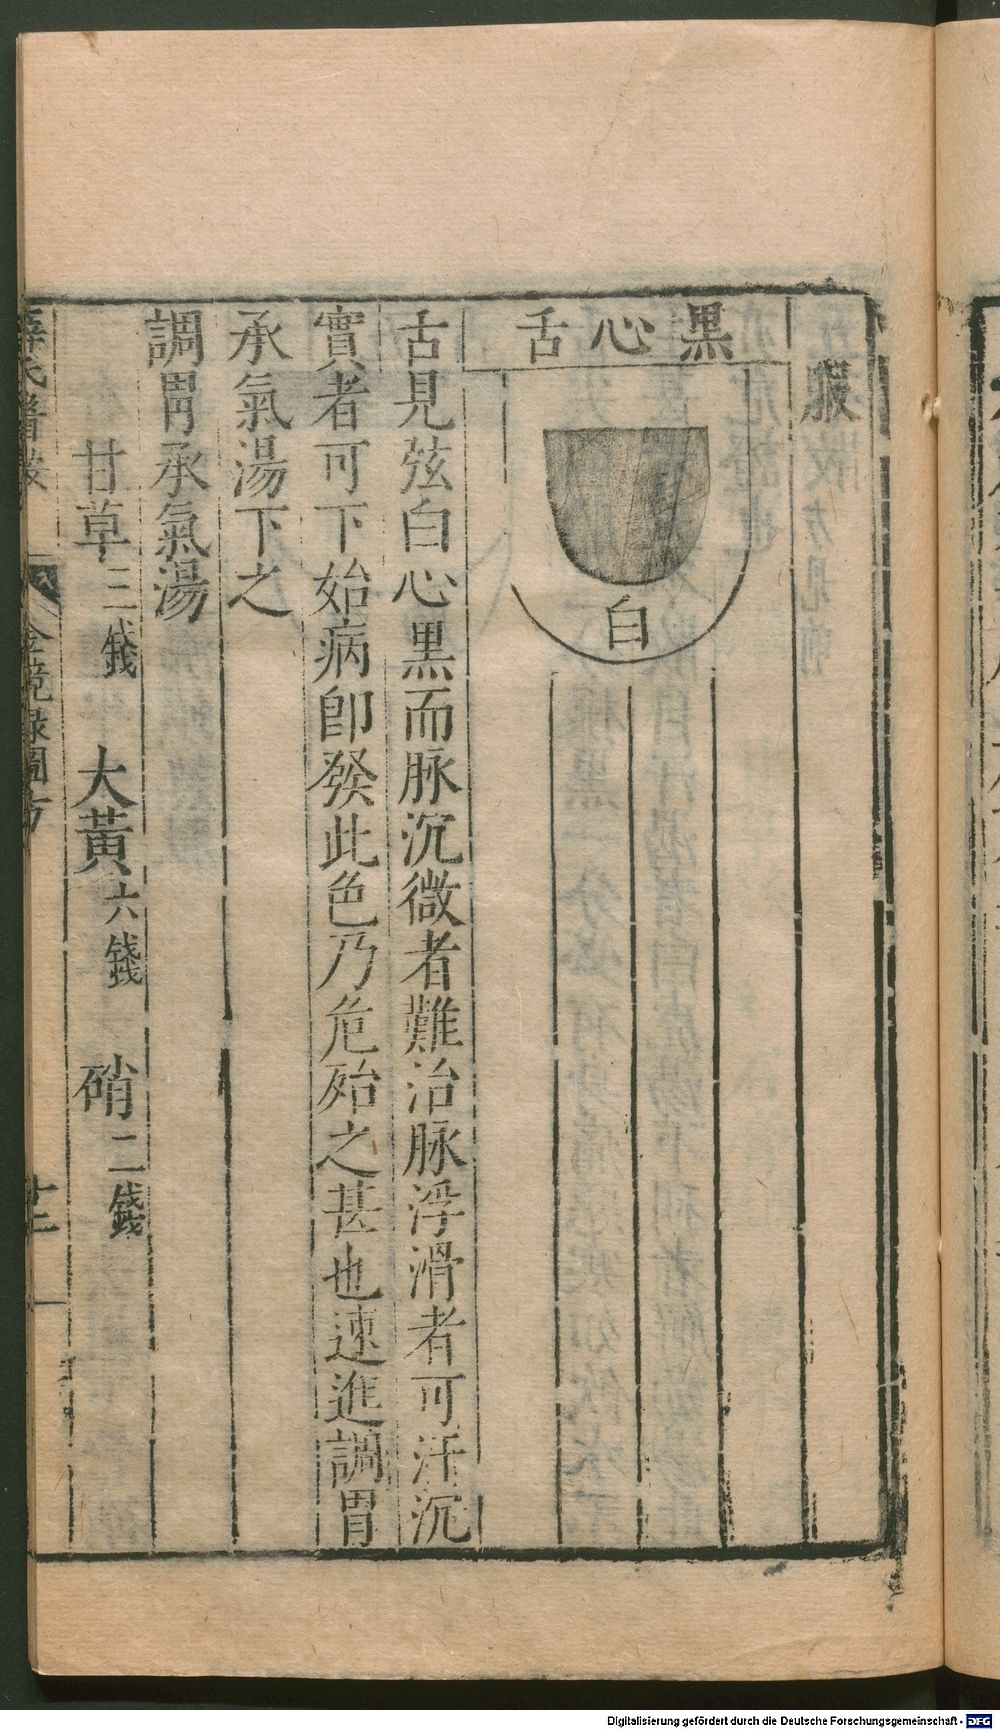 服
黑心舌
白
舌見弦白心黑而脉沉微者難治脉浮滑者可汗沉
實者可下始病卽發此色乃危殆之甚也速進調胃
承氣湯下之
調胃承氣湯
甘草三錢 大黃六錢 硝二錢
薛氏醫案 金鏡錄圖方 廿二
Digitalisierung gefördert durch die Deutsche Forschungsgemeinschaft - DFG